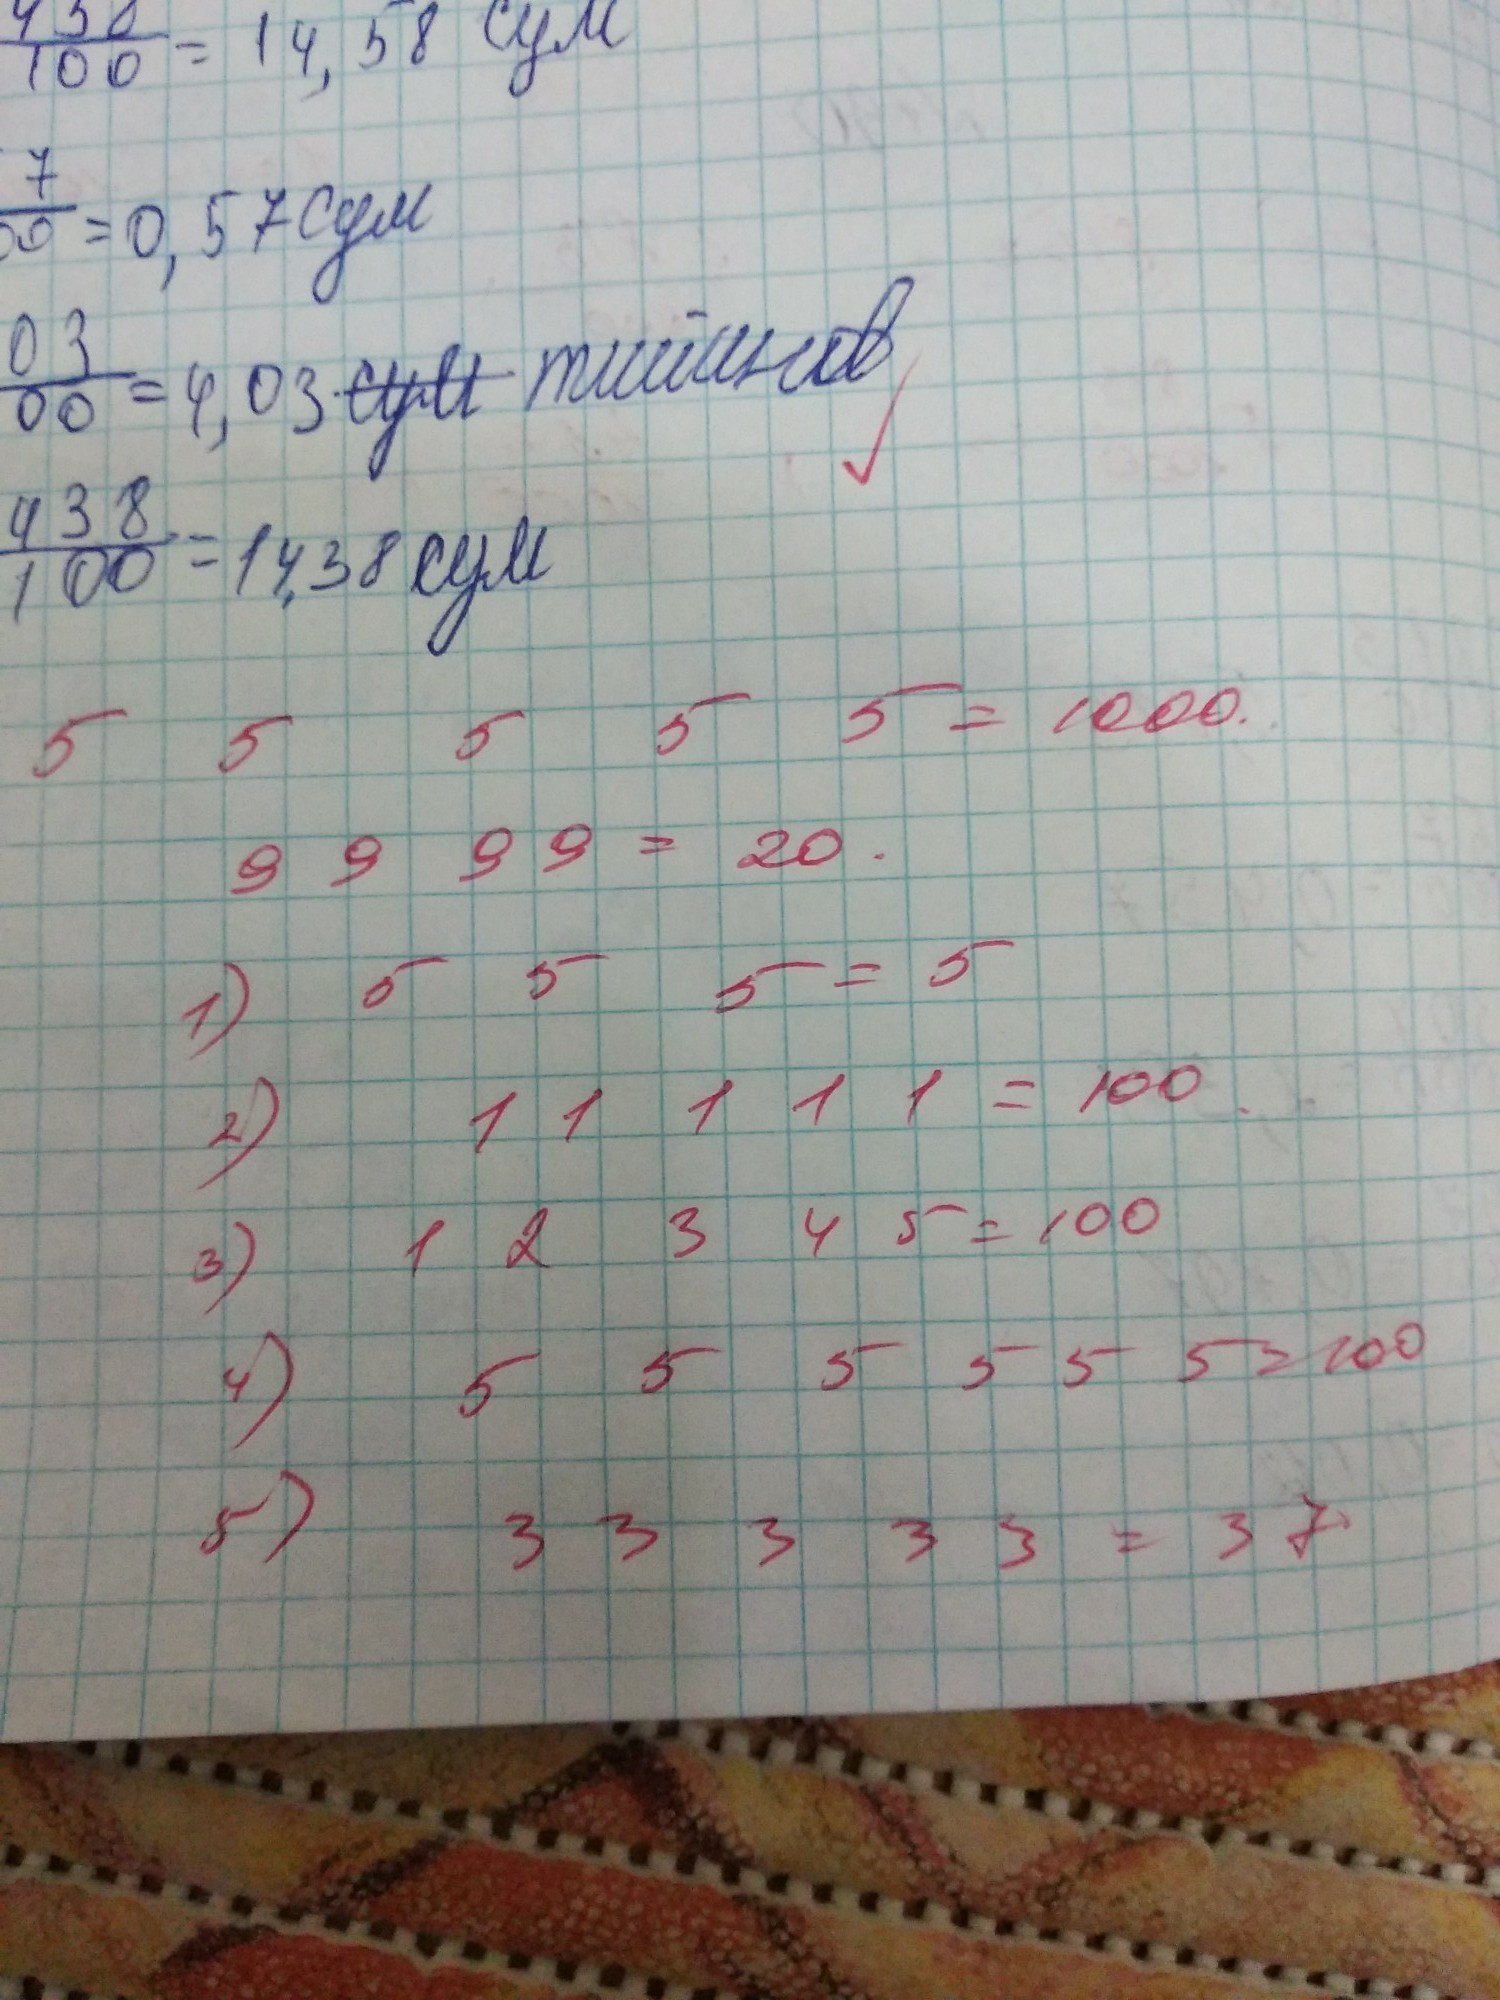 438
100 = 14,58 сум
7
00 = 0,57 сум
03
00 = 4,03 сум тийинов
438
100 = 14,38 сум
5 5 5 5 5 = 1000.
9 9 9 9 = 20.
1) 5 5 5 = 5
2) 1 1 1 1 1 = 100.
3) 1 2 3 4 5 = 100
4) 5 5 5 5 5 5 = 100
5) 3 3 3 3 3 = 37